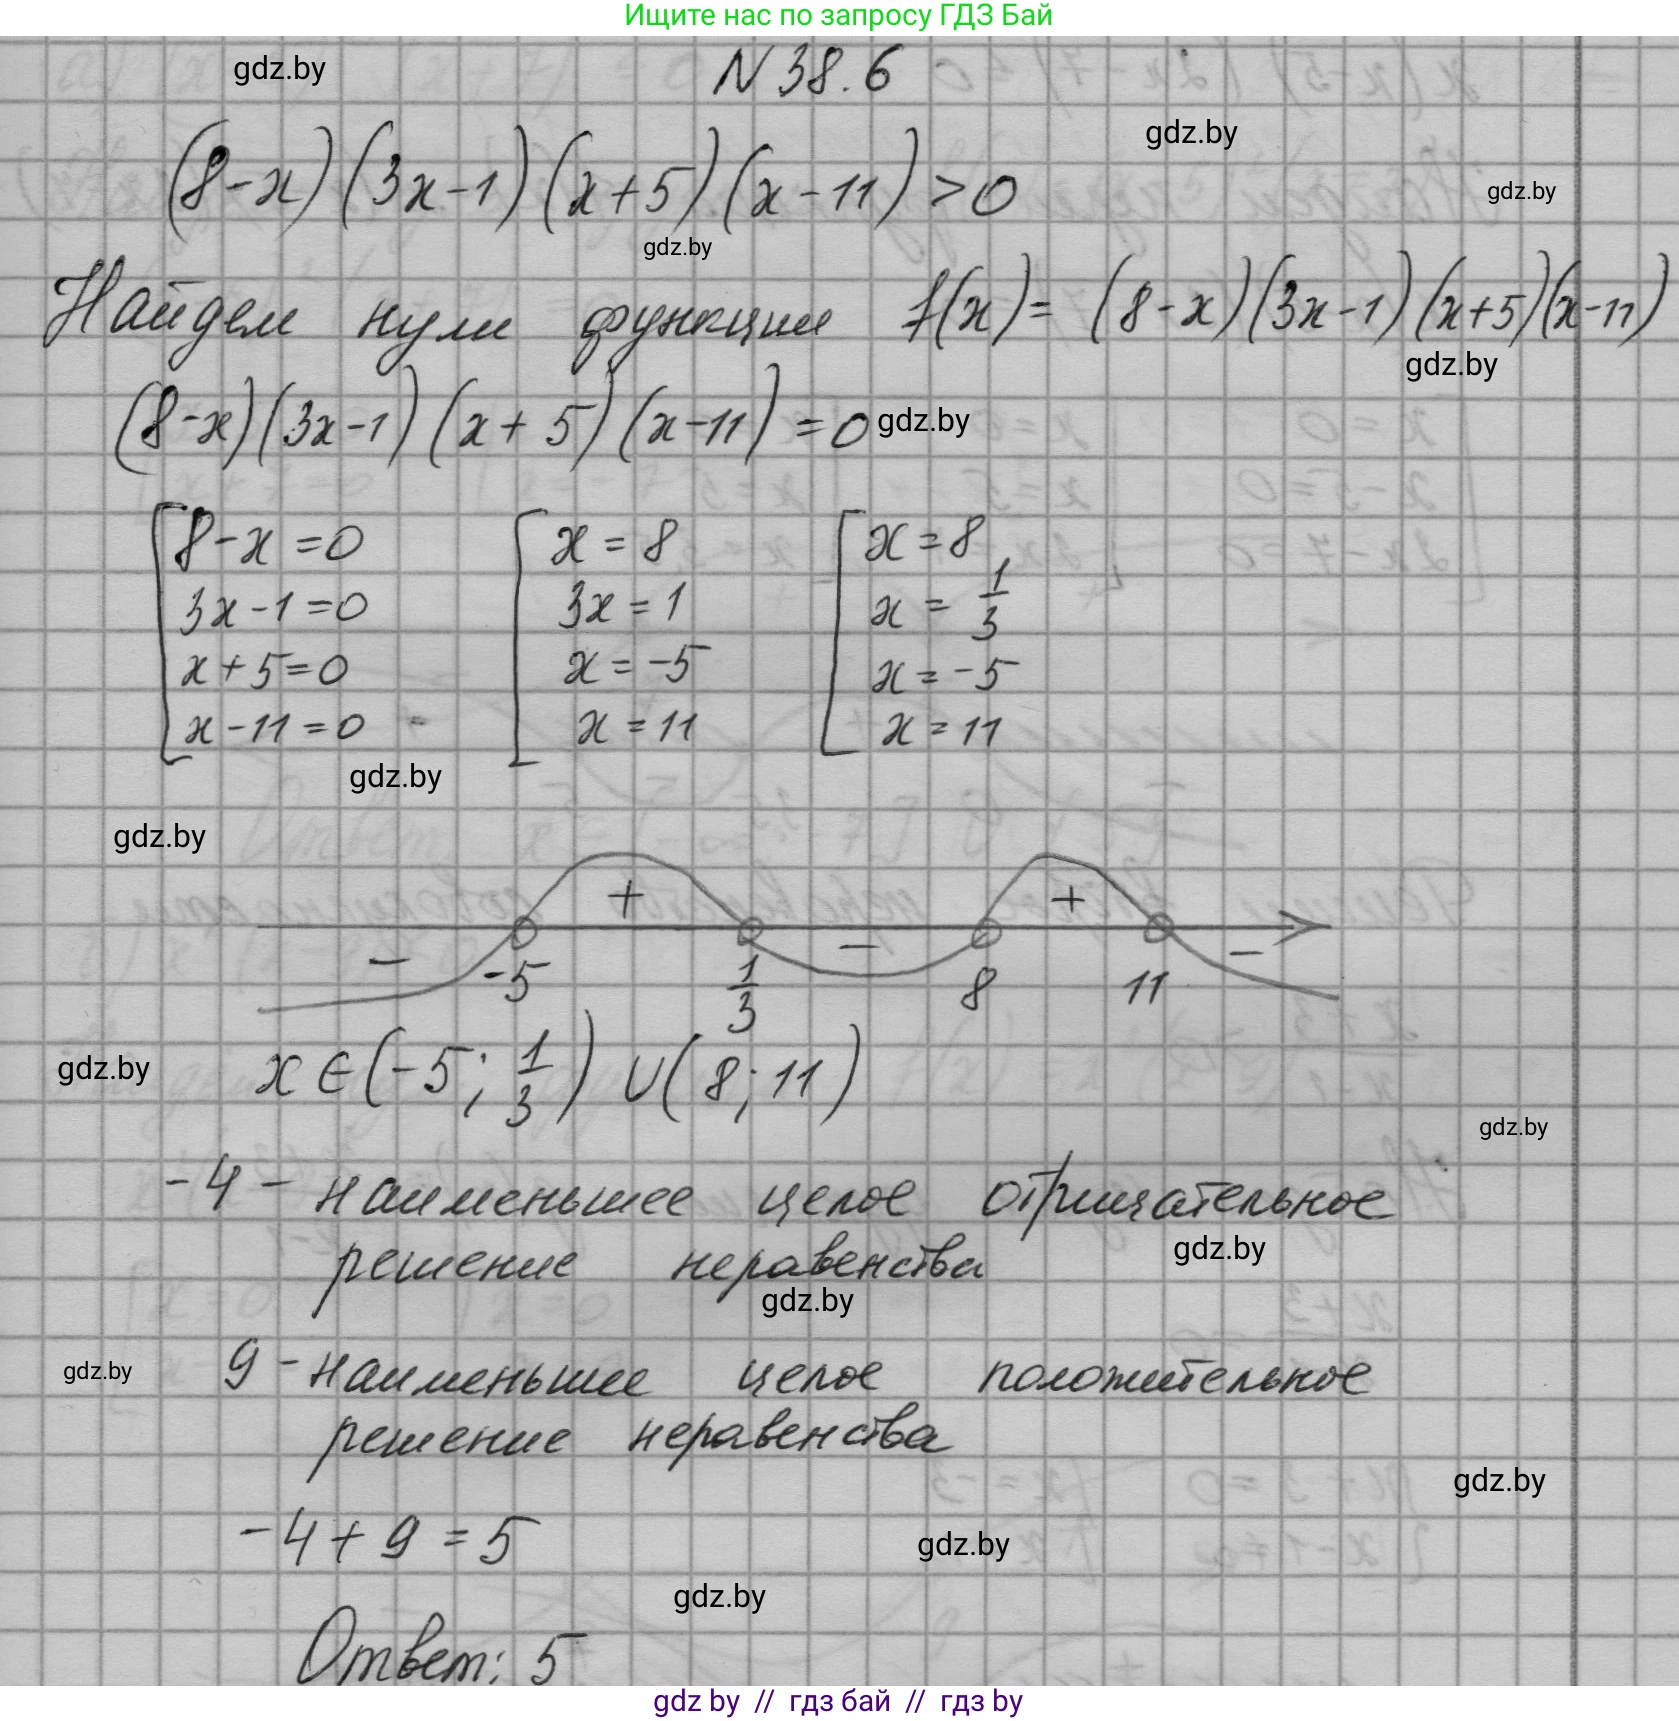 Ищите нас по запросу ГДЗ Бай
gdz.by
N 38.6
gdz.by
(8-x)(3x-1)(x+5)(x-11)>0
gdz.by
gdz.by
Найдем нули функции f(x)= (8-x)(3x-1)(x+5)(x-11)
gdz.by
(8-x)(3x-1)(x+5)(x-11)=0
gdz.by
[8-x=0 [x=8 [x=8
3x-1=0 3x=1 x=1/3
x+5=0 x=-5 x=-5
x-11=0 x=11 x=11
gdz.by
gdz.by
+ +
- - -
-5 1/3 8 11
gdz.by
x∈(-5; 1/3) ∪ (8; 11)
gdz.by
-4 - наименьшее целое отрицательное
решение неравенства
gdz.by
gdz.by
gdz.by
9 - наименьшее целое положительное
решение неравенства
gdz.by
-4+9=5
gdz.by
gdz.by
Ответ: 5
gdz by // гдз бай // гдз by